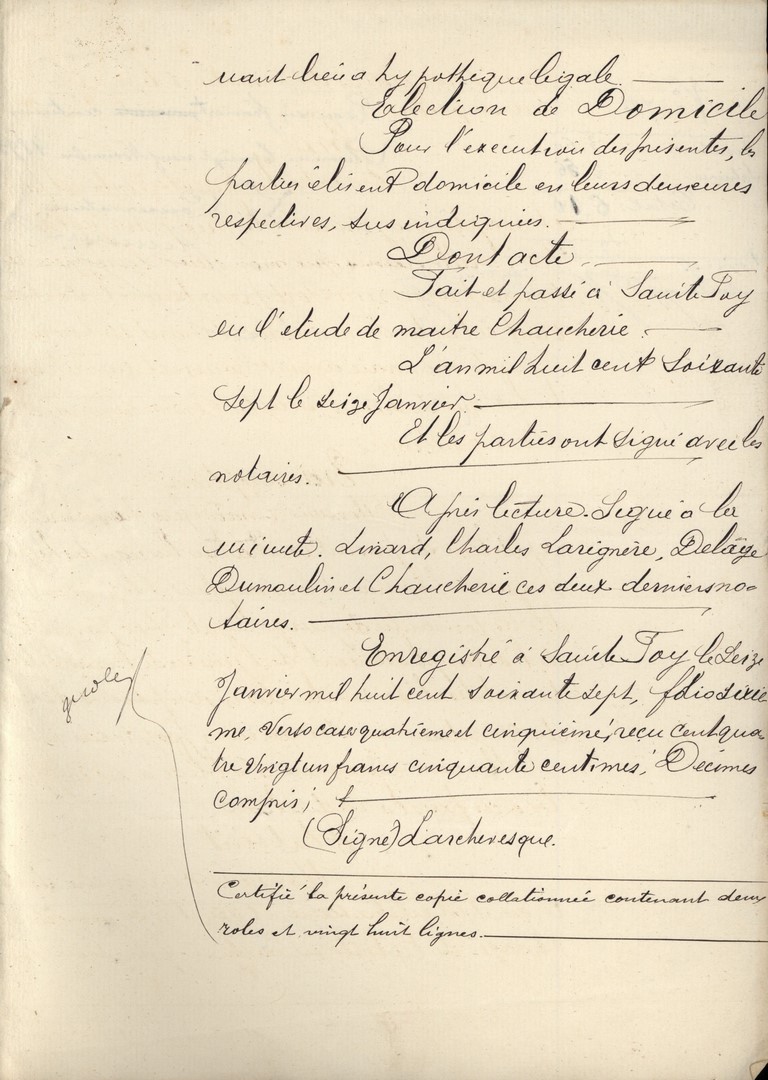 nant lieu a hypothèque légale.
Election de Domicile
Pour l'execution des présentes, les
parties élisent domicile en leurs demeures
respectives, sus indiquées.
Dont acte.
Fait et passé à Sainte Foy
en l'etude de maitre Chaucherie.
L'an mil huit cent soixante
sept le seize Janvier.
Et les parties ont signé avec les
notaires.
Après lecture. Signé à la
minute. Linard, Charles Larignère, Delâge
Dumoulin et Chaucherie ces deux derniers no-
taires.
Enregistré à Sainte Foy le Seize
Janvier mil huit cent soixante sept, folio sixiè
me, Verso cases quatrième et cinquième, reçu cent qua-
tre vingt un francs cinquante centimes, Décimes
compris;
(Signé) Larchevesque.
Certifié la présente copie collationnée contenant deux
roles et vingt huit lignes.